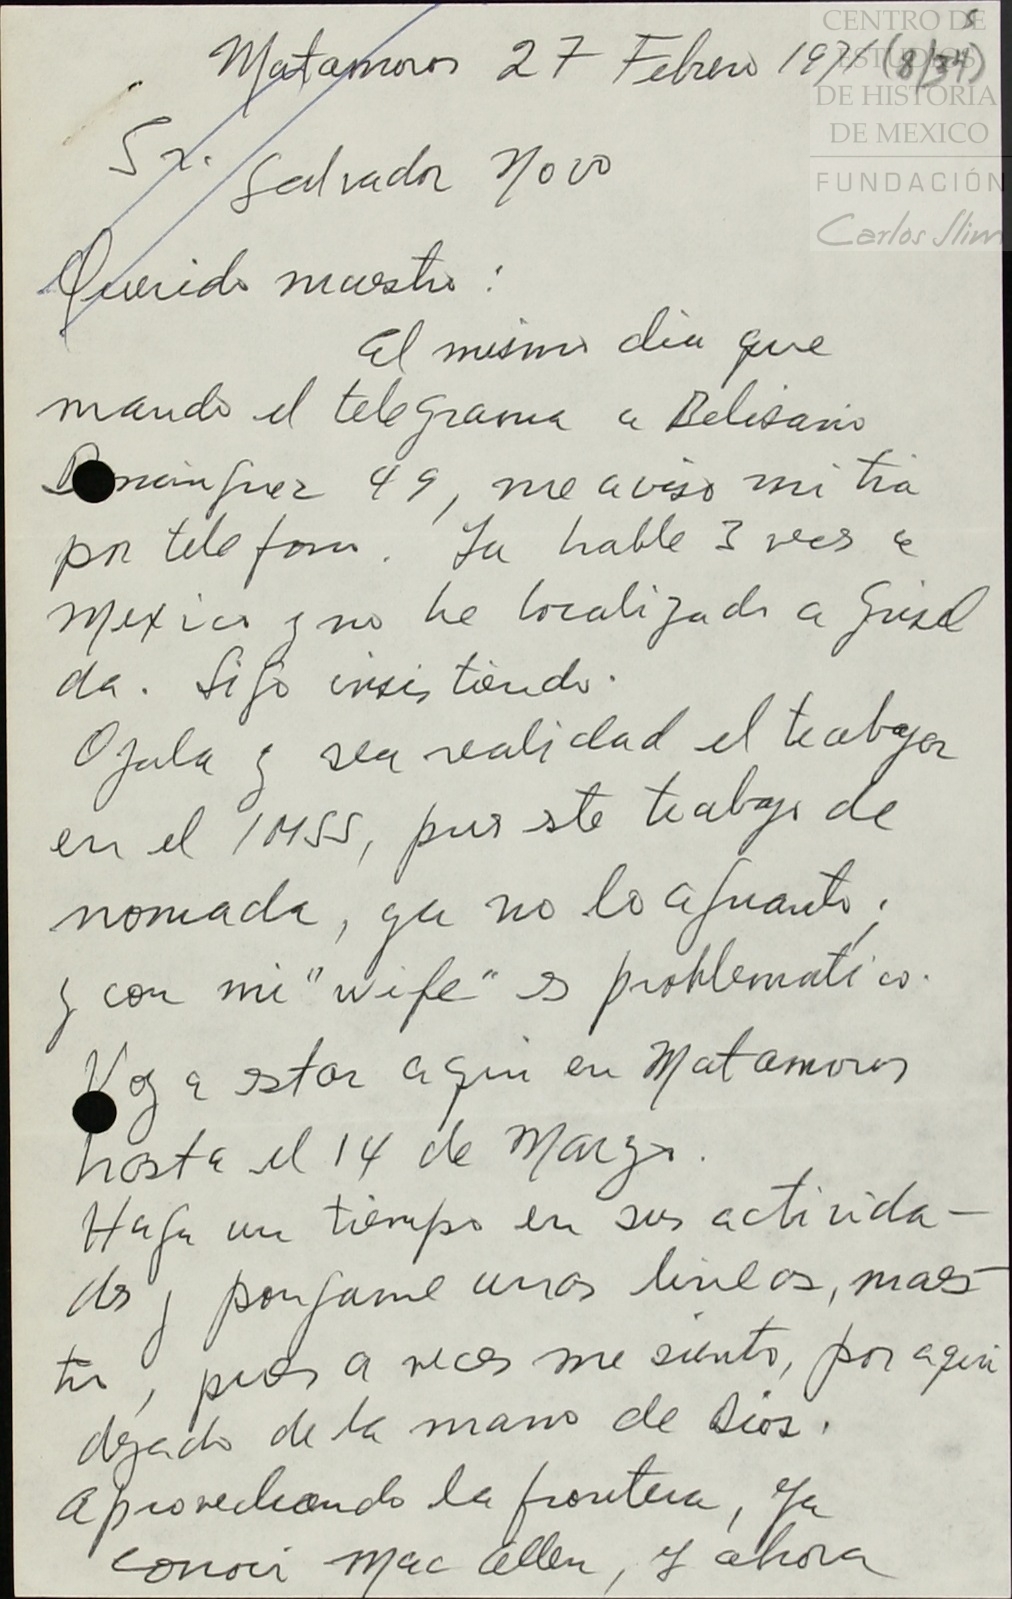 Matamoros 27 Febrero 1971 (8/34)
CENTRO DE
ESTUDIOS
DE HISTORIA
DE MEXICO
FUNDACIÓN
Carlos Slim
Sr. Salvador Novo
Querido maestro:
El mismo dia que
mando el telegrama a Belisario
Dominguez 49, me aviso mi tia
por telefono. Ya hable 3 veces a
Mexico y no he localizado a Grisel
da. Sigo insistiendo.
Ojala y sea realidad el trabajar
en el IMSS, pues este trabajo de
nomada, ya no lo aguanto,
y con mi "wife" es problematico.
Voy a estar aqui en Matamoros
hasta el 14 de Marzo.
Haga un tiempo en sus activida-
des y pongame unas lineas, maes-
tro, pues a veces me siento, por aqui
dejado de la mano de Dios.
Aprovechando la frontera, ya
conoci Mac Allen, y ahora